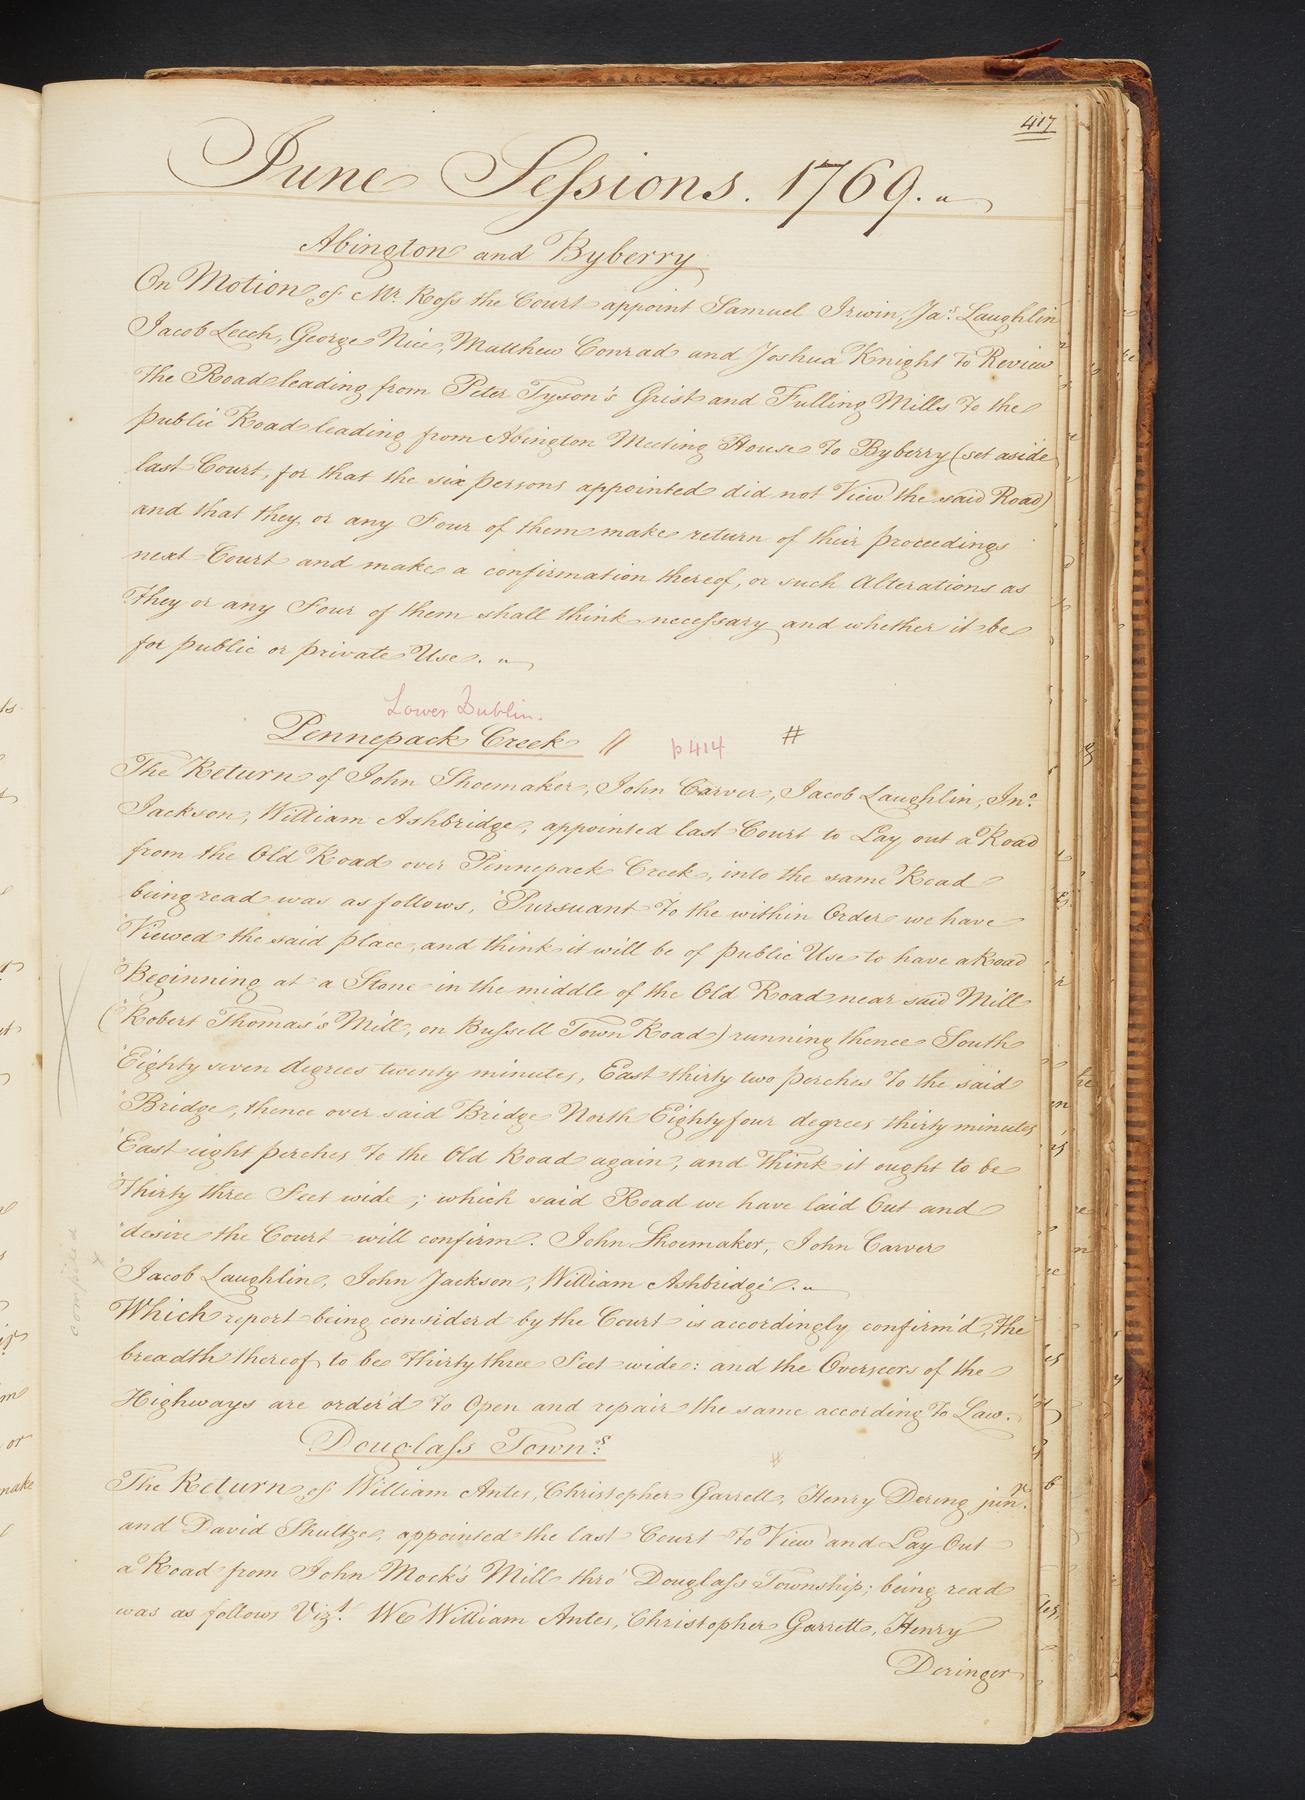 417
June Sessions. 1769.
Abington and Byberry
On Motion of Mr. Ross the Court appoint Samuel Irwin, Jas. Laughlin
Jacob Leech, George Nice, Matthew Conrad and Joshua Knight to Review
the Road leading from Peter Tyson's Grist and Fulling Mills to the
public Road leading from Abington Meeting House to Byberry (set aside
last Court, for that the six persons appointed did not View the said Road)
and that they or any Four of them make return of their proceedings
next Court and make a confirmation thereof, or such Alterations as
they or any Four of them shall think necessary and whether it be
for public or private Use.
Lower Dublin.
Pennepack Creek // p 414 #
The Return of John Shoemaker, John Carver, Jacob Laughlin, Jno.
Jackson, William Ashbridge, appointed last Court to Lay out a Road
from the Old Road over Pennepack Creek, into the same Road
being read was as follows, "Pursuant to the within Order we have
"Viewed the said place, and think it will be of public Use to have a Road
"Beginning at a Stone in the middle of the Old Road near said Mill
("Robert Thomas's Mill, on Bussell Town Road) running thence South
"Eighty seven degrees twenty minutes, East thirty two perches to the said
"Bridge, thence over said Bridge North Eighty four degrees thirty minutes
"East eight perches to the Old Road again, and think it ought to be
"thirty three Feet wide; which said Road we have laid Out and
"desire the Court will confirm. John Shoemaker, John Carver
"Jacob Laughlin, John Jackson, William Ashbridge".
Which report being consider'd by the Court is accordingly confirm'd, the
breadth thereof to be thirty three Feet wide: and the Overseers of the
Highways are order'd to Open and repair the same according to Law.
compiled
x
Douglass Towns. #
The Return of William Antes, Christopher Garrett, Henry Dering junr.
and David Shultze, appointed the last Court to View and Lay Out
a Road from John Mock's Mill thro' Douglass Township; being read
was as follows Vizt. We William Antes, Christopher Garrett, Henry
Deringer